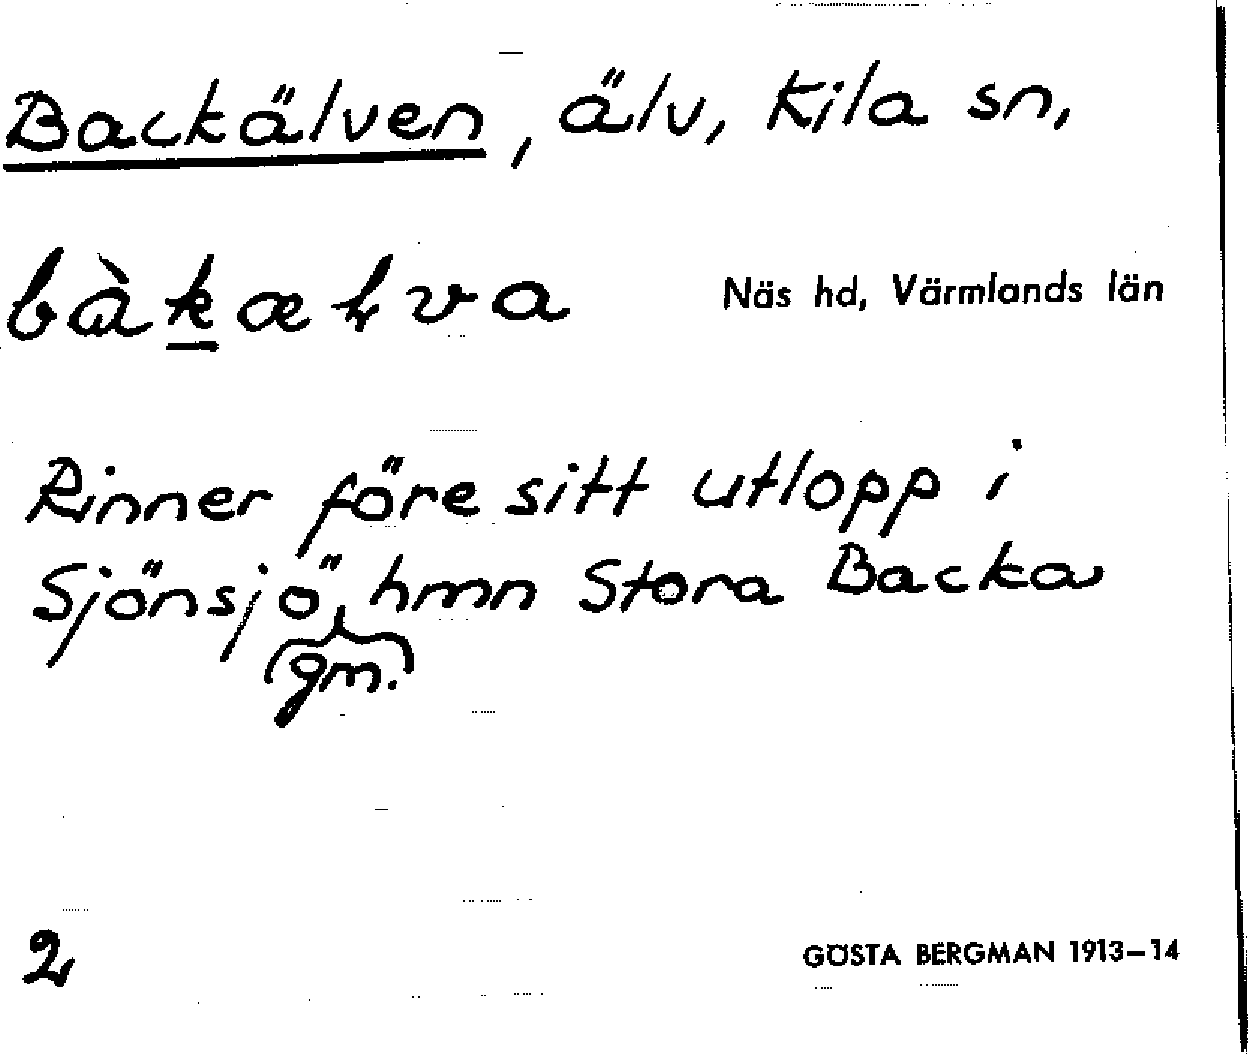 Backälven, älv, Kila sn,
bàkæɫva Näs hd, Värmlands län
Rinner före sitt utlopp i
Sjönsjö, hmn Stora Backa
gm.
2 GÖSTA BERGMAN 1913–14